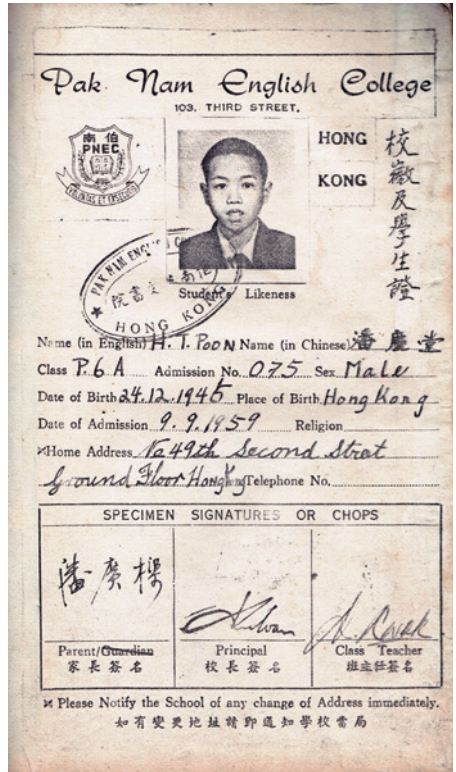 Pak Nam English College
103. THIRD STREET.
南 伯
PNEC
HONG
KONG
校徽及學生證
PAK NAM ENGLISH
書院
HONG KONG
Student's Likeness
Name (in English) H. T. POON Name (in Chinese) 潘慶堂
Class P. 6 A Admission No. 075 Sex Male
Date of Birth 24.12.1946 Place of Birth Hong Kong
Date of Admission 9.9.1959 Religion
Home Address No 49th Second Strat
Ground Floor Hong Kong Telephone No.
SPECIMEN SIGNATURES OR CHOPS
潘廣樑
Parent/Guardian Principal Class Teacher
家長簽名 校長簽名 班主任簽名
Please Notify the School of any change of Address immediately.
如有變更地址請即通知學校當局